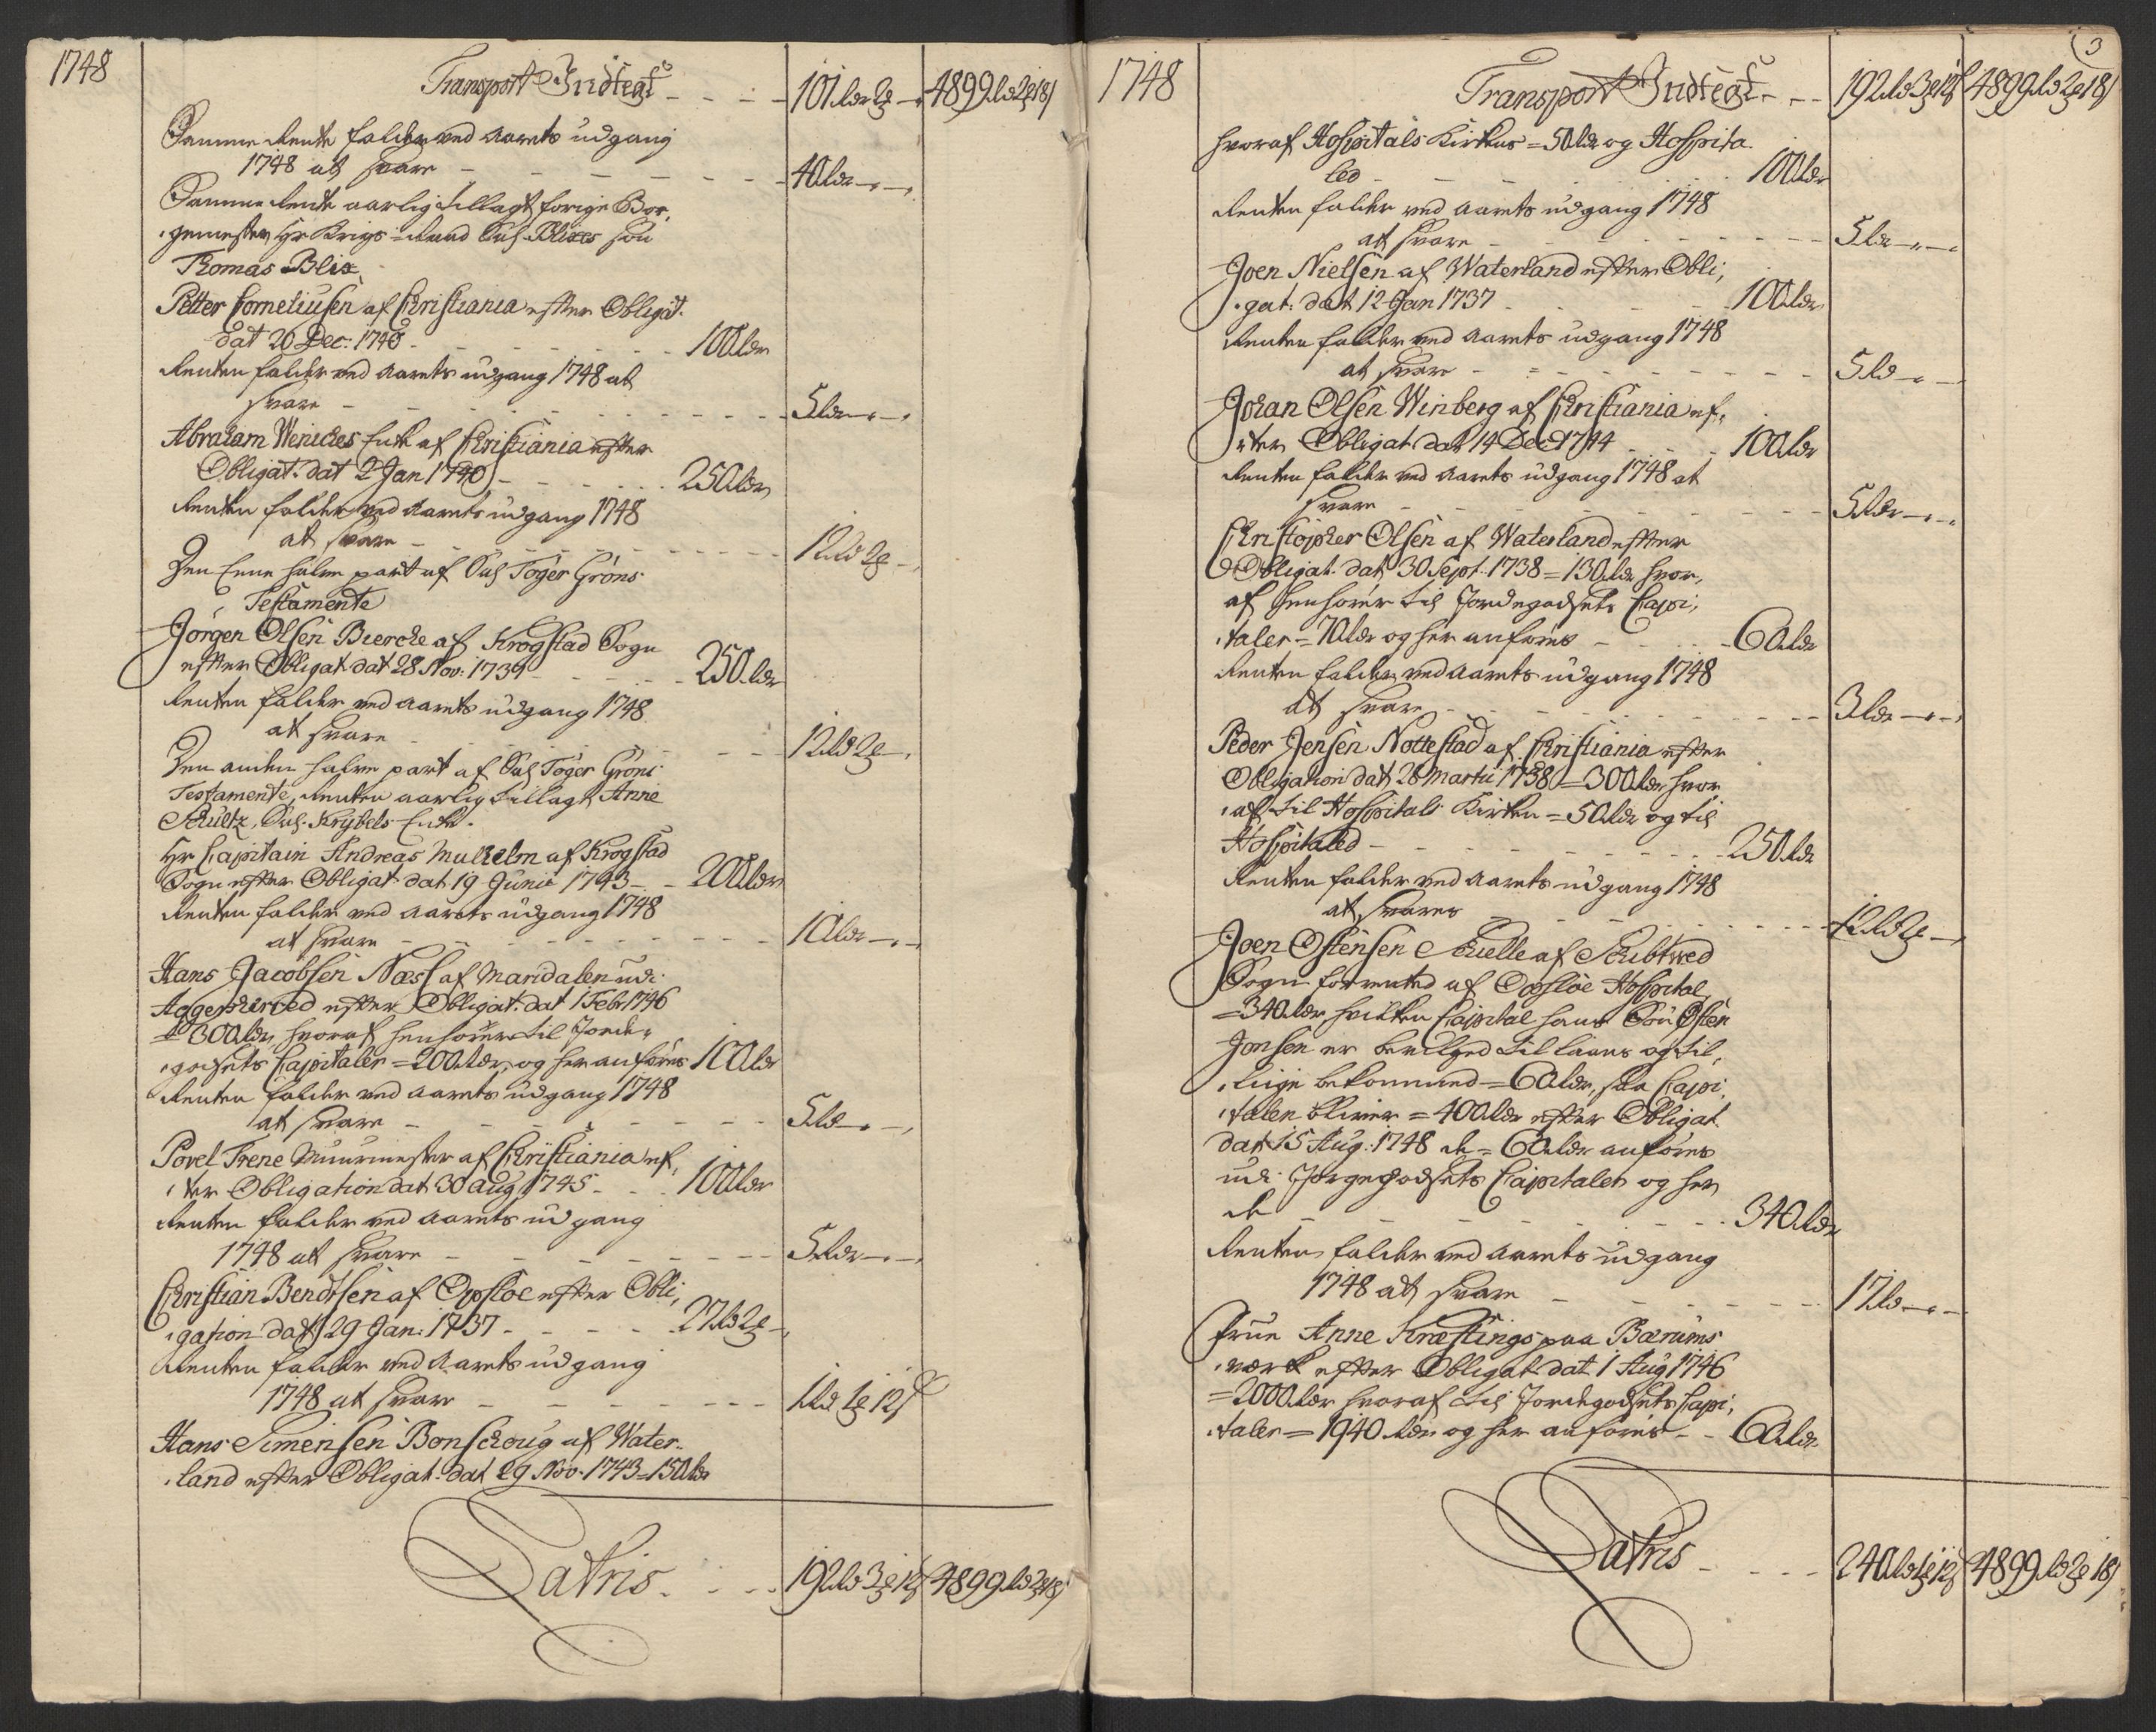 1748
Transport Indtegt - - - 101 rdr 2 ℔ - 4899 rd 2 ℔ 18 s
Samme Rente falder ved Aarets udgang
1748 at svare - - - - - - 40 rdr - -
Samme Rente aarlig tillagt forige Bor,
gemester Hr Krigs-Raad Sal. Blixes søn
Thomas Blix
Petter Corneliusen af Christiania efter Obligat.
dat 20 Dec: 1746 - - - - 100 rdr
Renten falder ved Aarets udgang 1748 at
svare - - - - - - 5 rdr - -
Abraham Wenickes Enke af Christiania efter
Obligat. dat 2 Jan 1740 - - - - 250 rdr
Renten falder ved Aarets udgang 1748
at svare - - - - - - 12 rd 2 ℔ -
Den Eene halve part af Sal Tøger Grøns
Testamente
Jørgen Olsen Biercke af Krogstad Sogn
efter Obligat dat 28 Nov: 1739 - - - 250 rdr
Renten falder ved Aarets udgang 1748
at svare - - - - - - 12 rd 2 ℔ -
Den anden halve part af Sal Tøger Grøns
Testamente, Renten aarlig tillagt Anne
Schultz, Sal. Krybels Enke.
Hr Capitain Andreas Mulhelm af Krogstad
Sogn efter Obligat dat 19 Junii 1743 - - 200 rdr
Renten falder ved Aarets udgang 1748
at svare - - - - - - 10 rdr - -
Hans Jacobsen Næss af Maridalen udi
Aggersherred efter Obligat. dat 1 Feb 1746
= 300 rdr, hvoraf henhører til Jorde,
godsets Capitaler = 200 rdr, og her anføres 100 rdr
Renten falder ved Aarets udgang 1748
at svare - - - - - - 5 rd - -
Povel Trene Muurmester af Christiania ef,
ter Obligation dat 30 Aug 1745 - - - 100 rdr
Renten falder ved Aarets udgang
1748 at svare - - - - - - 5 rdr - -
Christian Bendtsen af Opsloe efter Obli,
gation dat 29 Jan: 1737 - - - - 27 rd 2 ℔ -
Renten falder ved Aarets udgang
1748 at svare - - - - - - 1 rd 1 ℔ 12 s
Hans Simensen Bonschoug af Water,
land efter Obligat. dat 29 Nov. 1743 = 150 rdr
Latris - - - 192 rd 3 ℔ 12 s 4899 rd 2 ℔ 18 s
3
1748
Transport Indtegt - - - 192 rd 3 ℔ 12 s 4899 rd 2 ℔ 18 s
hvoraf Hospitals Kirken = 50 rdr og Hospita
led - - - - - - 100 rdr
Renten falder ved Aarets udgang 1748
at svare - - - - - - 5 rdr - -
Joen Nielsen af Waterland efter Obli,
gat. dat 12 Jan 1737 - - - - 100 rdr
Renten falder ved Aarets udgang 1748
at svare - - - - - - 5 rd - -
Johan Olsen Winberg af Christiania ef,
ter Obligat dat 14 Dec 1744 - - - 100 rdr
Renten falder ved Aarets udgang 1748 at
svare - - - - - - 5 rdr - -
Christopher Olsen af Waterland efter
Obligat. dat 30 Sept. 1738 = 130 rdr hvor,
af henhører til Jordegodsets Capi,
taler = 70 rdr og her anføres - - - 60 rdr
Renten falder ved Aarets udgang 1748
at svare - - - - - - 3 rdr - -
Peder Jensen Nottestad af Christiania efter
Obligation dat 28 Martii 1738 = 300 rdr hvor
af til Hospitals Kirken = 50 rdr og til
Hospitaled - - - - - - 250 rdr
Renten falder ved Aarets udgang 1748
at svares - - - - - - 12 rd 2 ℔ -
Joen Østensen Schielle af Schibtved
Sogn forrented af Opsloe Hospital
= 340 rdr hvilken Capital hans Søn Østen
Jonsen er bevilged til laans og til,
liige bekommed = 60 rdr, saa Capi,
talen bliver = 400 rdr efter Obligat.
dat 15 Aug: 1748 de = 60 rdr anføres
udi Jorgegodsets Capitaler og her
de - - - - - - 340 rdr
Renten falder ved Aarets udgang
1748 at svare - - - - - - 17 rd - -
Frue Anne Kræftings paa Bærums
værk efter Obligat. dat 1 Aug 1746
= 2000 rdr hvoraf til Jordegodsets Capi,
taler = 1940 rdr og her anføres - - 60 rdr
Latris - - - 240 rd 1 ℔ 12 s 4899 rd 2 ℔ 18 s